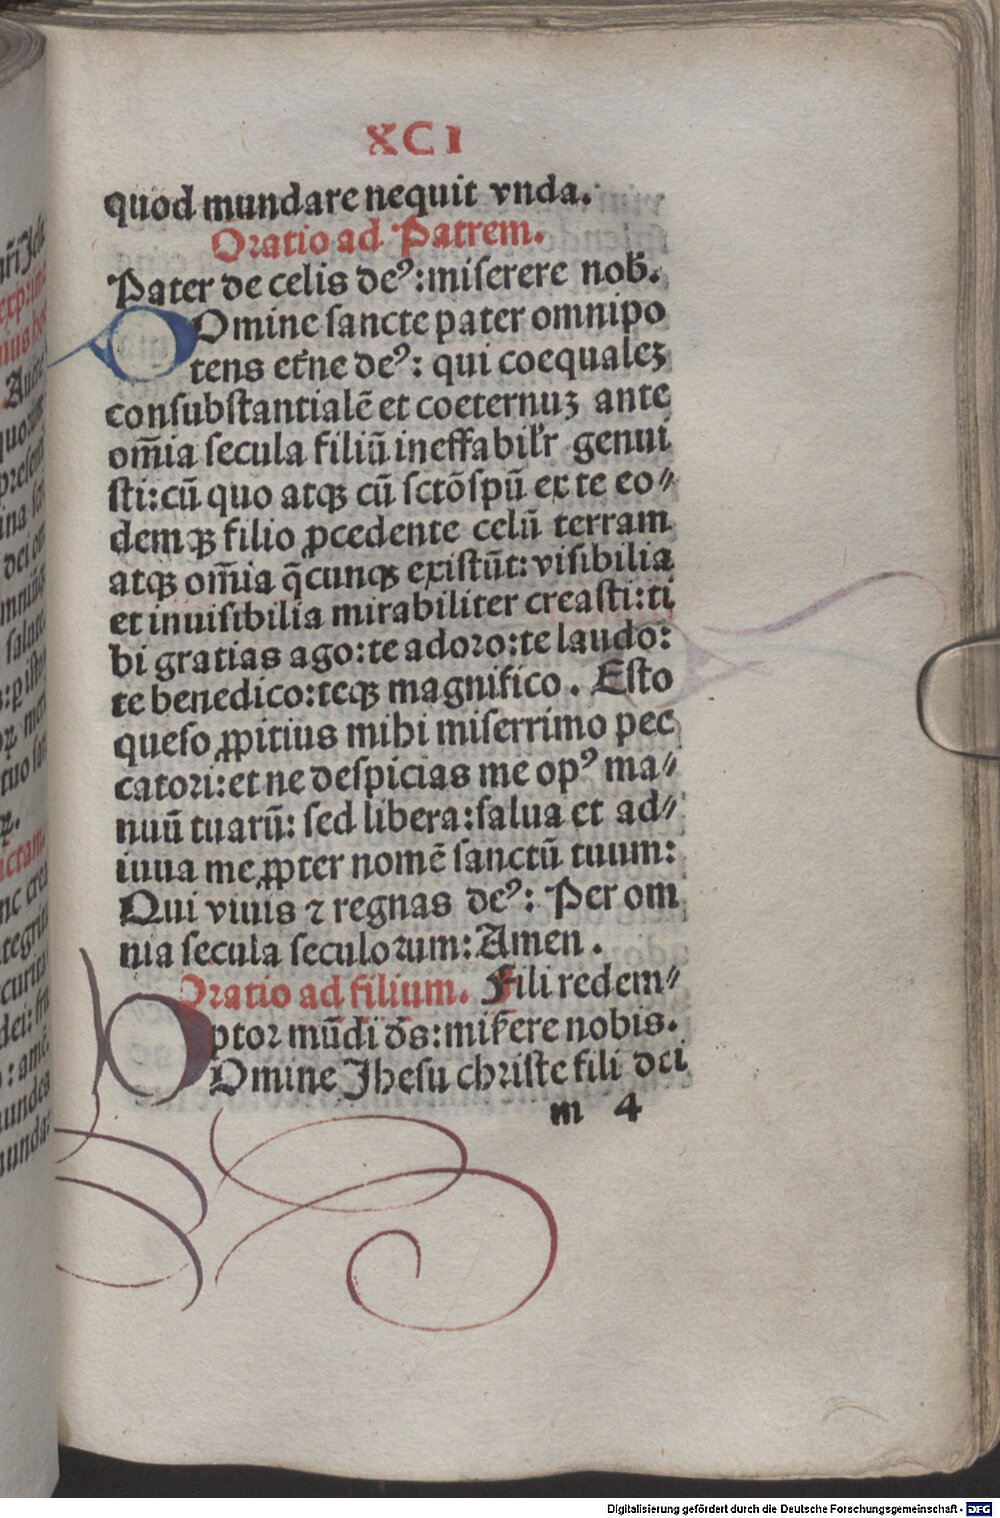 XCI
quod mundare nequit vnda.
Oratio ad Patrem.
Pater de celis deꝰ: miserere nob̄.
Domine sancte pater omnipo
tens et̄ne deꝰ: qui coequaleꝫ
consubstantialē et coeternuꝫ ante
om̄ia secula filiū ineffabilr̄ genui
sti: cū quo atqꝫ cū sctō spū ex te eo⸗
demqꝫ filio ꝓcedente celū terram
atqꝫ om̄ia q̄cunqꝫ existūt: visibilia
et inuisibilia mirabiliter creasti: ti
bi gratias ago: te adoro: te laudo:
te benedico: teqꝫ magnifico. Esto
queso ꝓpitius mihi miserrimo pec
catori: et ne despicias me opꝰ ma⸗
nuū tuarū: sed libera: salua et ad⸗
iuua me ꝓpter nomē sanctū tuum:
Qui viuis ⁊ regnas deꝰ: Per om
nia secula seculorum: Amen.
Oratio ad filium. Fili redem⸗
ptor mūdi d̄s: mis̄ere nobis.
Domine Jhesu christe fili dei
m 4
Digitalisierung gefördert durch die Deutsche Forschungsgemeinschaft - DFG